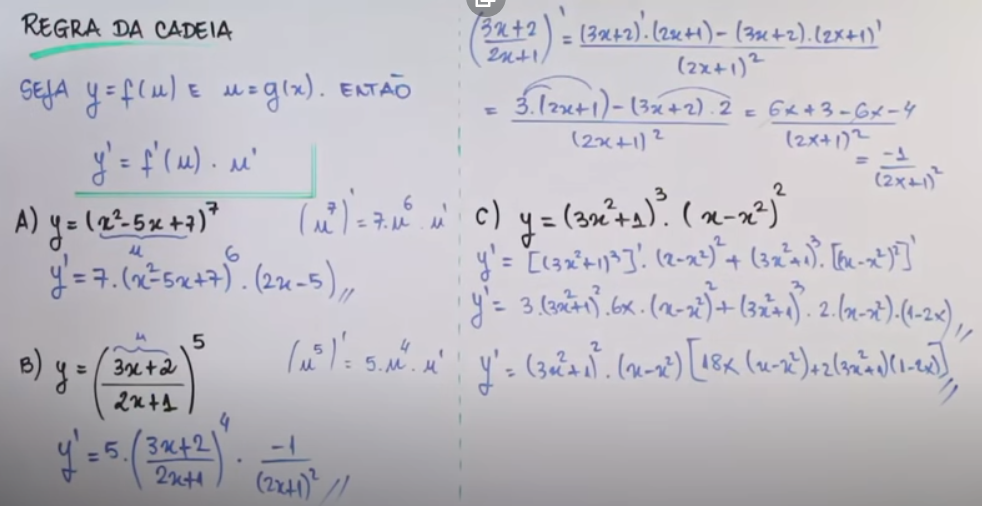 REGRA DA CADEIA
SEJA y = f(u) E u = g(x). ENTÃO
y' = f'(u) . u'
A) y = (x²-5x+7)⁷ (u⁷)' = 7.u⁶.u'
u
y' = 7.(x²-5x+7)⁶.(2x-5)//
u
B) y = ((3x+2)/(2x+1))⁵ (u⁵)' = 5.u⁴.u'
y' = 5.((3x+2)/(2x+1))⁴ . -1/(2x+1)² //
((3x+2)/(2x+1))' = ((3x+2)'.(2x+1) - (3x+2).(2x+1)')/(2x+1)²
= (3.(2x+1) - (3x+2).2)/(2x+1)² = (6x+3-6x-4)/(2x+1)²
= -1/(2x+1)²
C) y = (3x²+1)³.(x-x²)²
y' = [(3x²+1)³]'.(x-x²)² + (3x²+1)³.[(x-x²)²]'
y' = 3.(3x²+1)².6x.(x-x²)² + (3x²+1)³.2.(x-x²).(1-2x)//
y' = (3x²+1)².(x-x²)[18x(x-x²)+2(3x²+1)(1-2x)]//